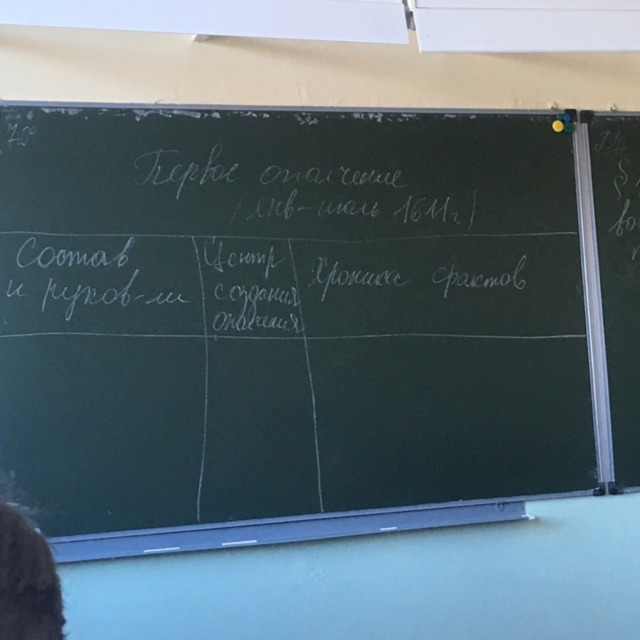 Первое ополчение
(янв-июль 1611г)
Состав
и руков-ли
Центр
создания
ополчения
Хроника фактов